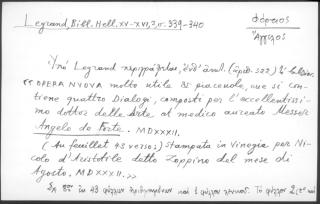 Legrand, Bibl. Hell. XV-XVI, 3, σ. 339-340
Φόρτιος
Ἄγγελος
Ὑπό Legrand περιγράφεται, ἀριθ.
« OPERA NUOVA molto utile & piacevole, oue si con-
tiene quattro Dialogi, composti per l'accellentissi-
mo dottor delle Arte al medico aureato Messer
Angelo de Forte. - MDXXXII.
(Au feuillet 43 verso:) Stampata in Vinegia per Ni-
colo d'Aristotile detto Zoppino del mese di
Agosto. MDXXXII. »
Σὲ 8ον ἐκ 43 φύλλων ἀριθμημένων καὶ 1 φύλλου λευκοῦ. Τὸ φύλλον